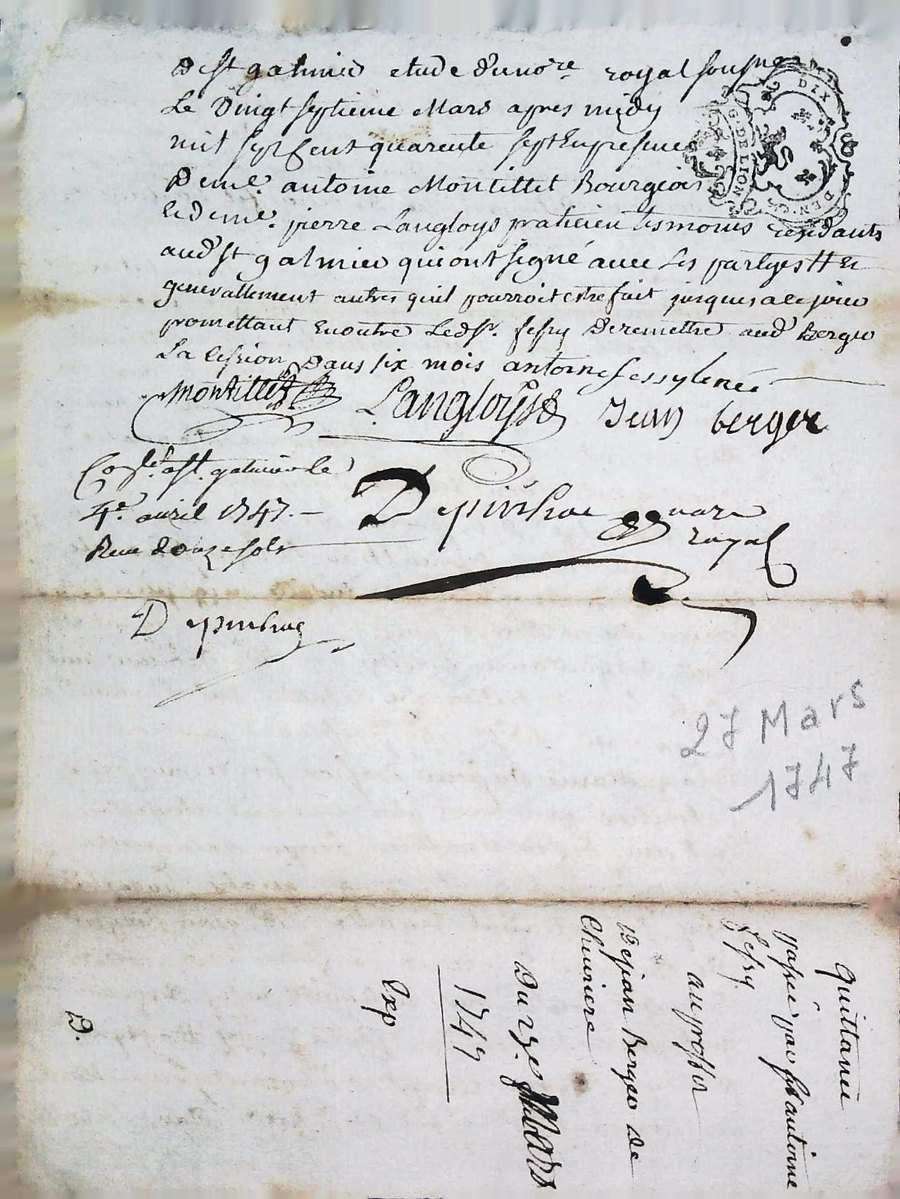 De St galmier etude du nore royal sousne
Le Vingt septieme Mars apres midy
mil sept Cent quarente sept En presence
De me. antoine Montillet Bourgeois
et de me. pierre Langloys praticien tesmoins residants
aud St galmier qui ont signé avec Les partyes Et
generallement autres quil pourroit estre fait jusques a ce jour
promettant En outre Led Sr. fessy De remettre aud Berger
La Cession Dans six mois antoine fessy
Montillet Langloys Jean berger
Conlé a St. galmier le
4e. avril 1747. –
Receu douze sols
Depinhac nore
royal
Depinhac
27 Mars
1747
DIX
G. DE LION
DEN.
Quittance
passée par Sr antoine
fessy
au proffit
De jean Berger de
Cheviere
Du 27e Mars
1747
Exp
D.